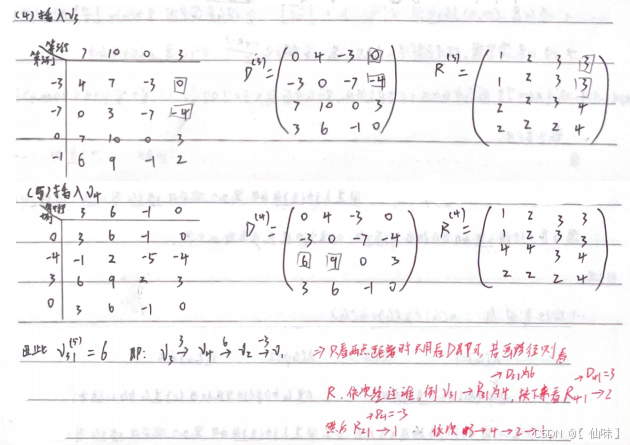 (4) 插入 V3
第4行 7 10 0 3
第3列
-3 4 7 -3 0
-7 0 3 -7 -4
0 7 10 0 3
-1 6 9 -1 2
D(3)= 0 4 -3 0
-3 0 -7 -4
7 10 0 3
3 6 -1 0
R(3)= 1 2 3 3
1 2 3 3
2 2 3 4
2 2 2 4
(5) 插入 V4
3 6 -1 0
0 3 6 -1 0
-4 -1 2 -5 -4
3 6 9 2 3
0 3 6 -1 0
D(4)= 0 4 -3 0
-3 0 -7 -4
6 9 0 3
3 6 -1 0
R(4)= 1 2 3 3
1 2 3 3
4 4 3 4
2 2 2 4
因此 V31(5) = 6 即: V3 →3 V4 →6 V2 →-3 V1
⇒ 只看两点距离时只用后D即可, 若画路径则看
→ D31为6 → D41=3
R, 依次经过谁, 例 V31 → R31为4, 接下来看 R41 → 2
→ D21=-3
然后 R21 → 1 ∴ 依次 3→4→2→
CSDN @【 仙味】